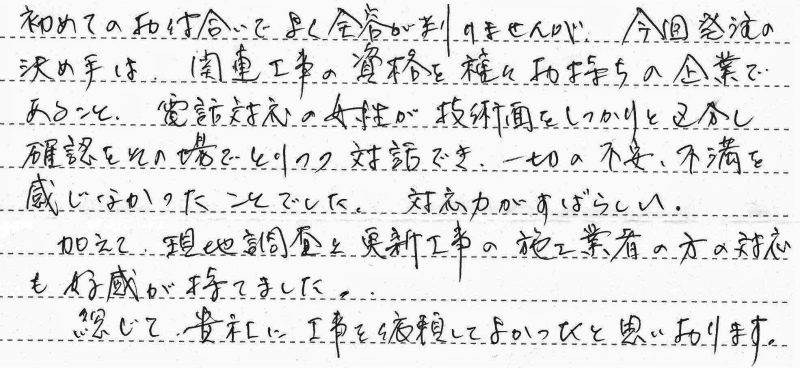 初めてのお付合いでよく全容が判りませんが、今回発注の
決め手は、関連工事の資格を種々お持ちの企業で
あること、電話対応の女性が技術面をしっかりと区分し
確認をその場でとりつつ対話でき、一切の不安、不満を
感じなかったことでした。対応力がすばらしい。
加えて、現地調査と更新工事の施工業者の方の対応
も好感が持てました。
総じて、貴社に工事を依頼してよかったと思いおります。